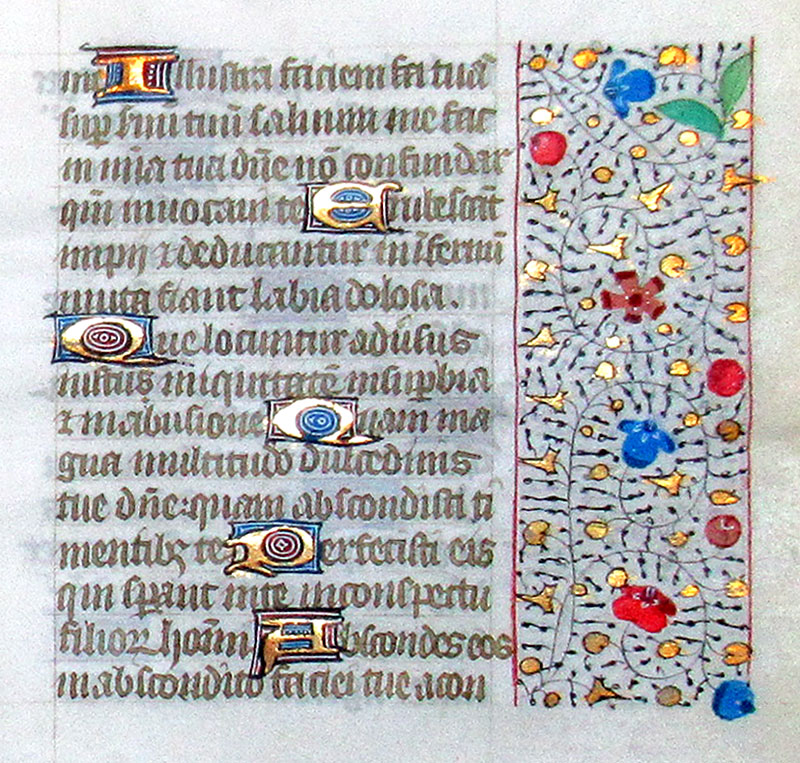 mei Illustra faciem fa tuā
suꝑ seruū tuū saluum me fac
in mīa tua dn̄e nō confundar
qm̄ inuocaui te Erubescāt
impij ⁊ deducantur in infernū
muta fiant labia dolosa.
Que locuntur aduersus
iustus iniquitatē in suꝑbia
⁊ in abusione Quam ma
gna multitudo dulcedinis
tue dn̄e: quam abscondisti ti
mentibꝫ te Perfecisti eis
qui sꝑant in te in conspectu
filioꝝ hoīm Abscondes eos
in abscondito faciei tue a con